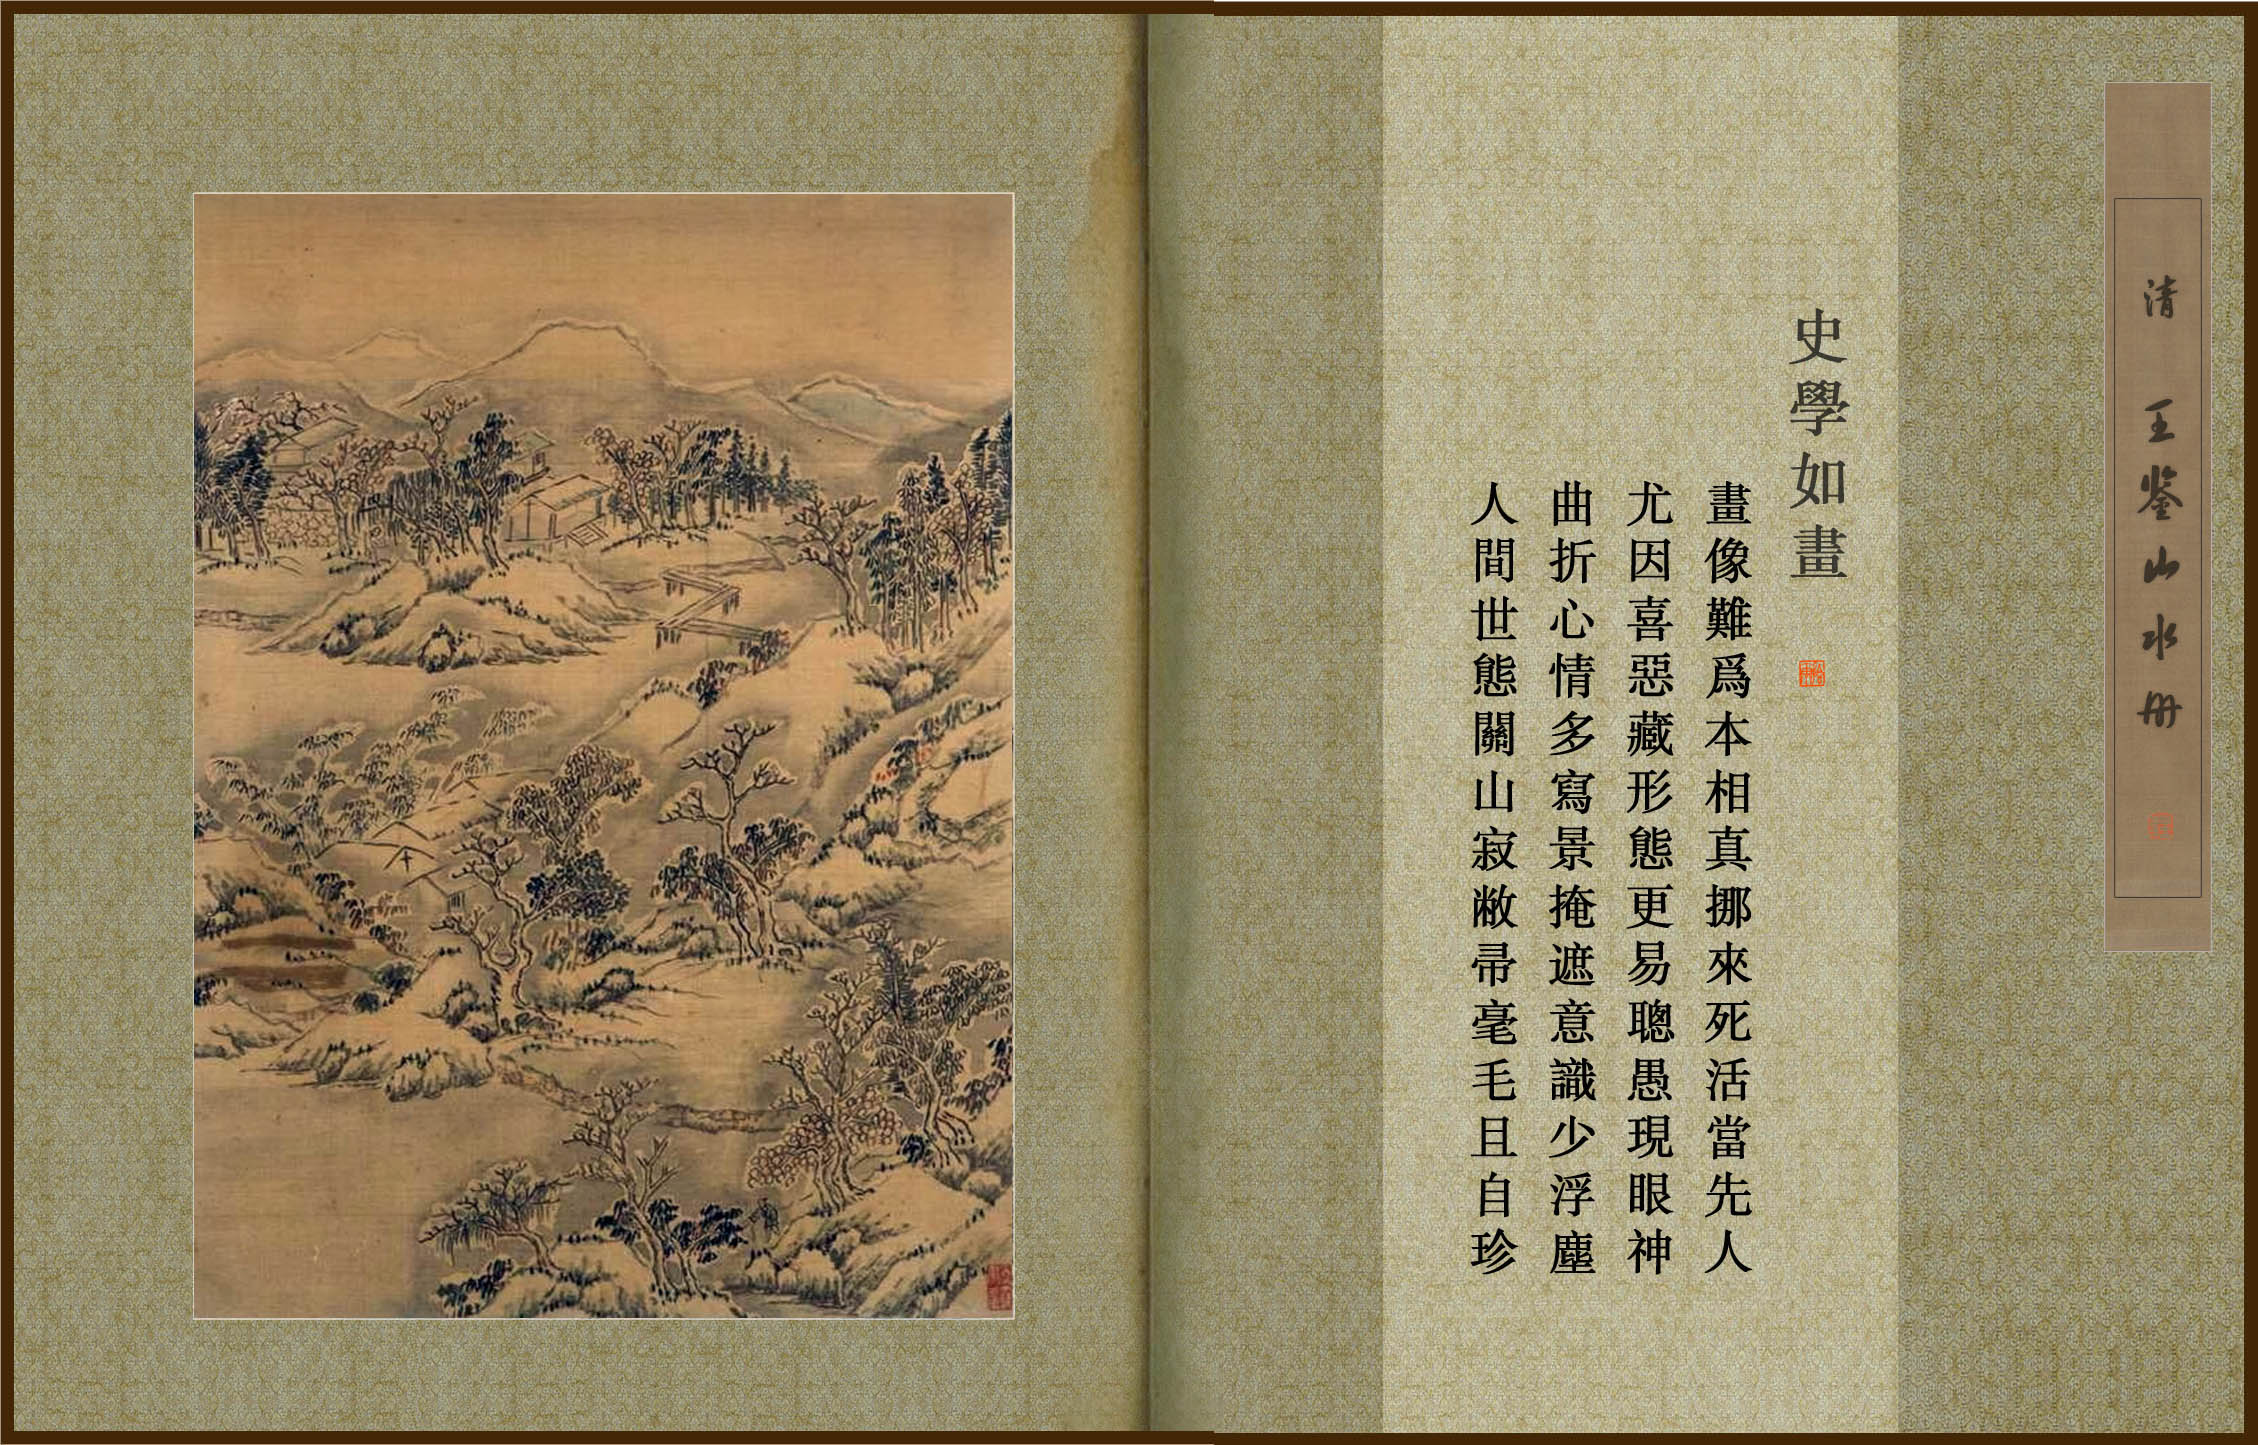 清 王鉴山水册
史學如畫
畫像難爲本相真挪來死活當先人
尤因喜惡藏形態更易聰愚現眼神
曲折心情多寫景掩遮意識少浮塵
人間世態關山寂敝帚毫毛且自珍